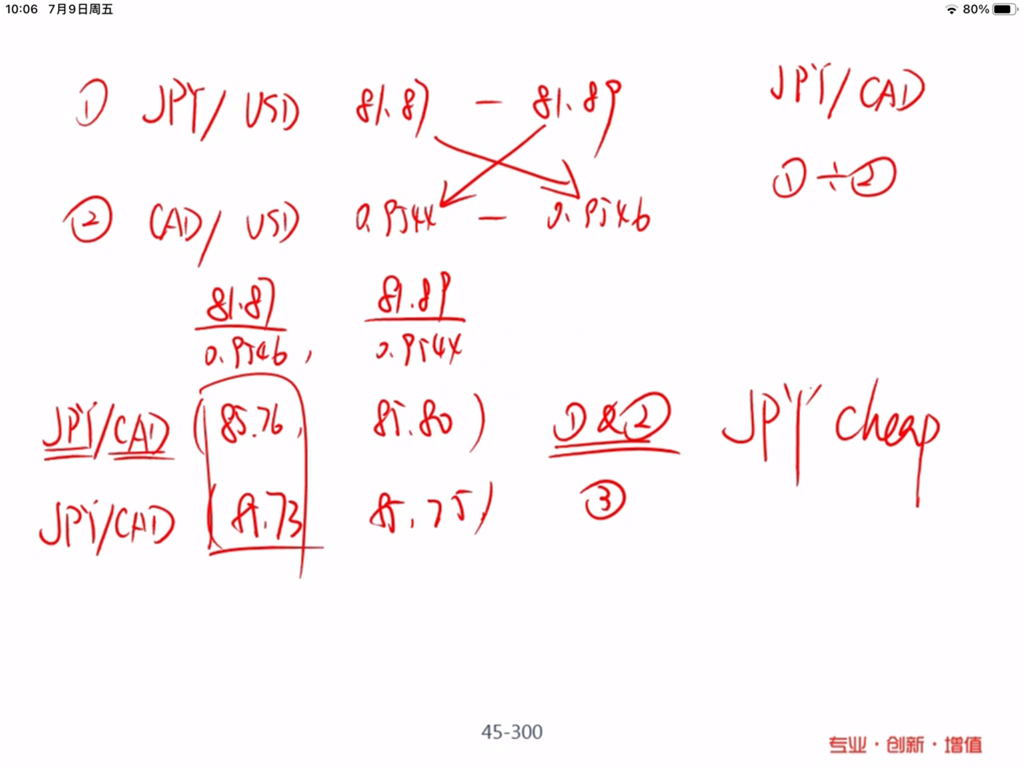 10:06 7月9日周五
80%
① JPY/USD 81.87 - 81.89
JPY/CAD
① ÷ ②
② CAD/USD 0.9544 - 0.9546
81.87 81.89
0.9546, 0.9544
JPY/CAD (85.76, 85.80)
①&②
JPY cheap
③
JPY/CAD (85.73 85.75)
45-300
专业·创新·增值